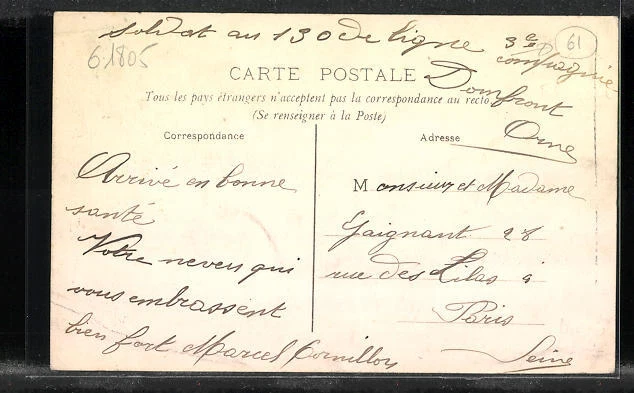 soldat au 130 de ligne 3e
compagnie
61
61805
Domfront
Orne
CARTE POSTALE
Tous les pays étrangers n'acceptent pas la correspondance au recto
(Se renseigner à la Poste)
Correspondance
Arrivé en bonne
santé
Votre neveu qui
vous embrassent
bien fort Marcel Cornillon
Adresse
Monsieur et Madame
Gaignant 28
rue des Lilas à
Paris
Seine